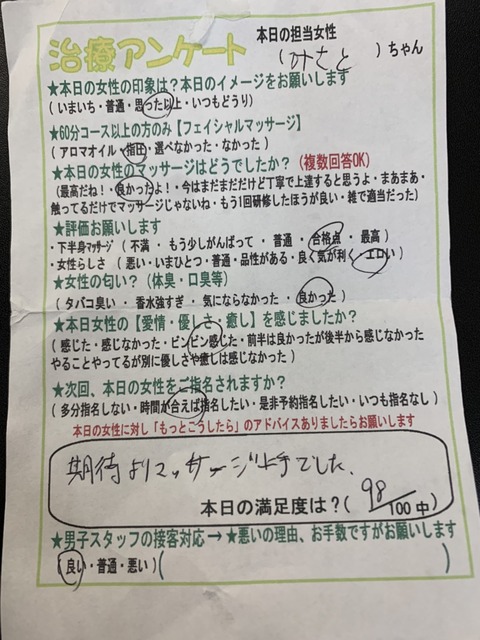 治療アンケート
本日の担当女性
(みさと)ちゃん
★本日の女性の印象は？本日のイメージをお願いします
(いまいち・普通・思った以上・いつもどうり)
★60分コース以上の方のみ【フェイシャルマッサージ】
(アロマオイル・指圧・選べなかった・なかった)
★本日の女性のマッサージはどうでしたか？(複数回答OK)
(最高だね！・良かったよ！・今はまだまだだけど丁寧で上達すると思うよ・まあまあ・
触ってるだけでマッサージじゃないね・もう1回研修したほうが良い・雑で適当だった)
★評価お願いします
・下半身マッサージ(不満・もう少しがんばって・普通・合格点・最高)
・女性らしさ(悪い・いまひとつ・普通・品性がある・良く気が利く・エロい)
★女性の匂い？(体臭・口臭等)
(タバコ臭い・香水強すぎ・気にならなかった・良かった)
★本日女性の【愛情・優しさ・癒し】を感じましたか？
(感じた・感じなかった・ビンビン感じた・前半は良かったが後半から感じなかった
やることやってるが別に優しさや癒しは感じなかった)
★次回、本日の女性をご指名されますか？
(多分指名しない・時間が合えば指名したい・是非予約指名したい・いつも指名なし)
本日の女性に対し「もっとこうしたら」のアドバイスありましたらお願いします
期待よりマッサージ上手でした。
本日の満足度は？(98/100中)
★男子スタッフの接客対応→★悪いの理由、お手数ですがお願いします
(良い・普通・悪い)( )